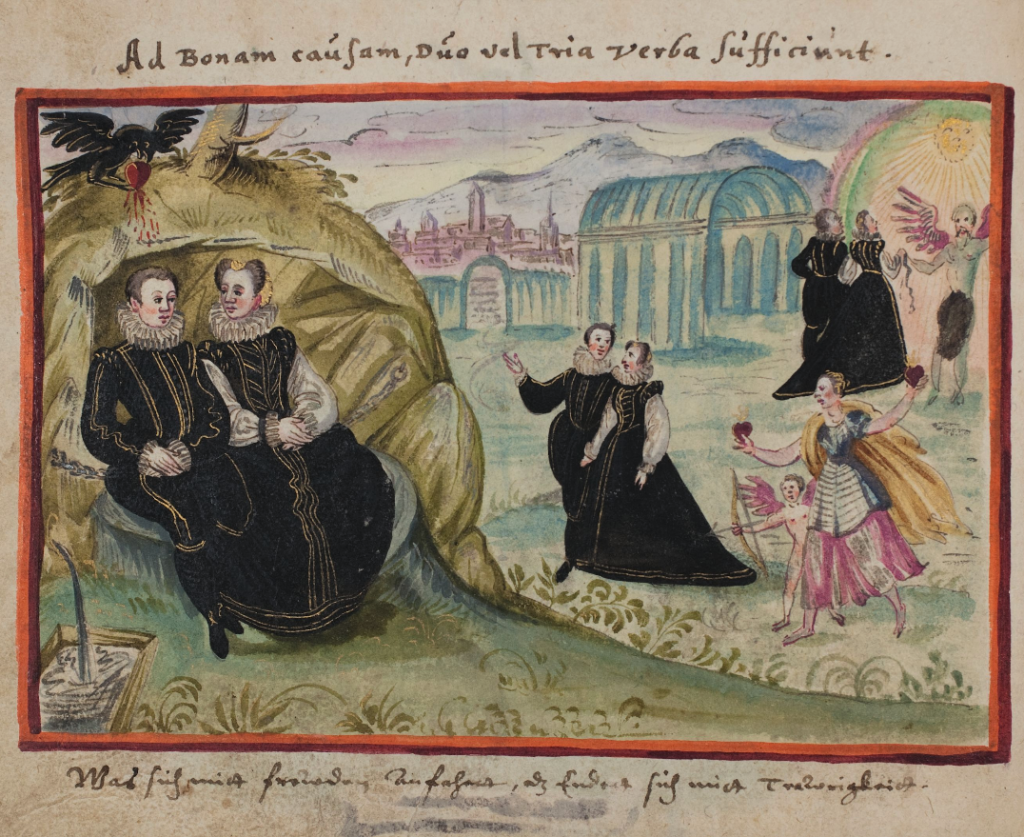 Ad Bonam causam, Duo vel Tria Verba sufficiunt.
Was sich mitt frewden Anfahet, dz Endett sich mitt Trawrigkeitt.